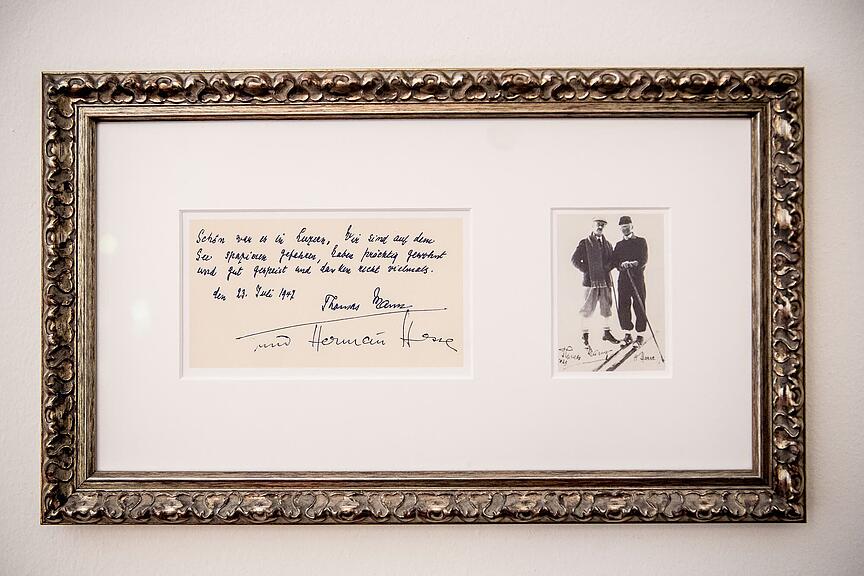 Schön war es in Luzern, Wir sind auf dem
See spazieren gefahren, haben prächtig gewohnt
und gut gespeist und danken recht vielmals.
den 23. Juli 1947
Thomas Mann
und Herman Hesse
H Hesse